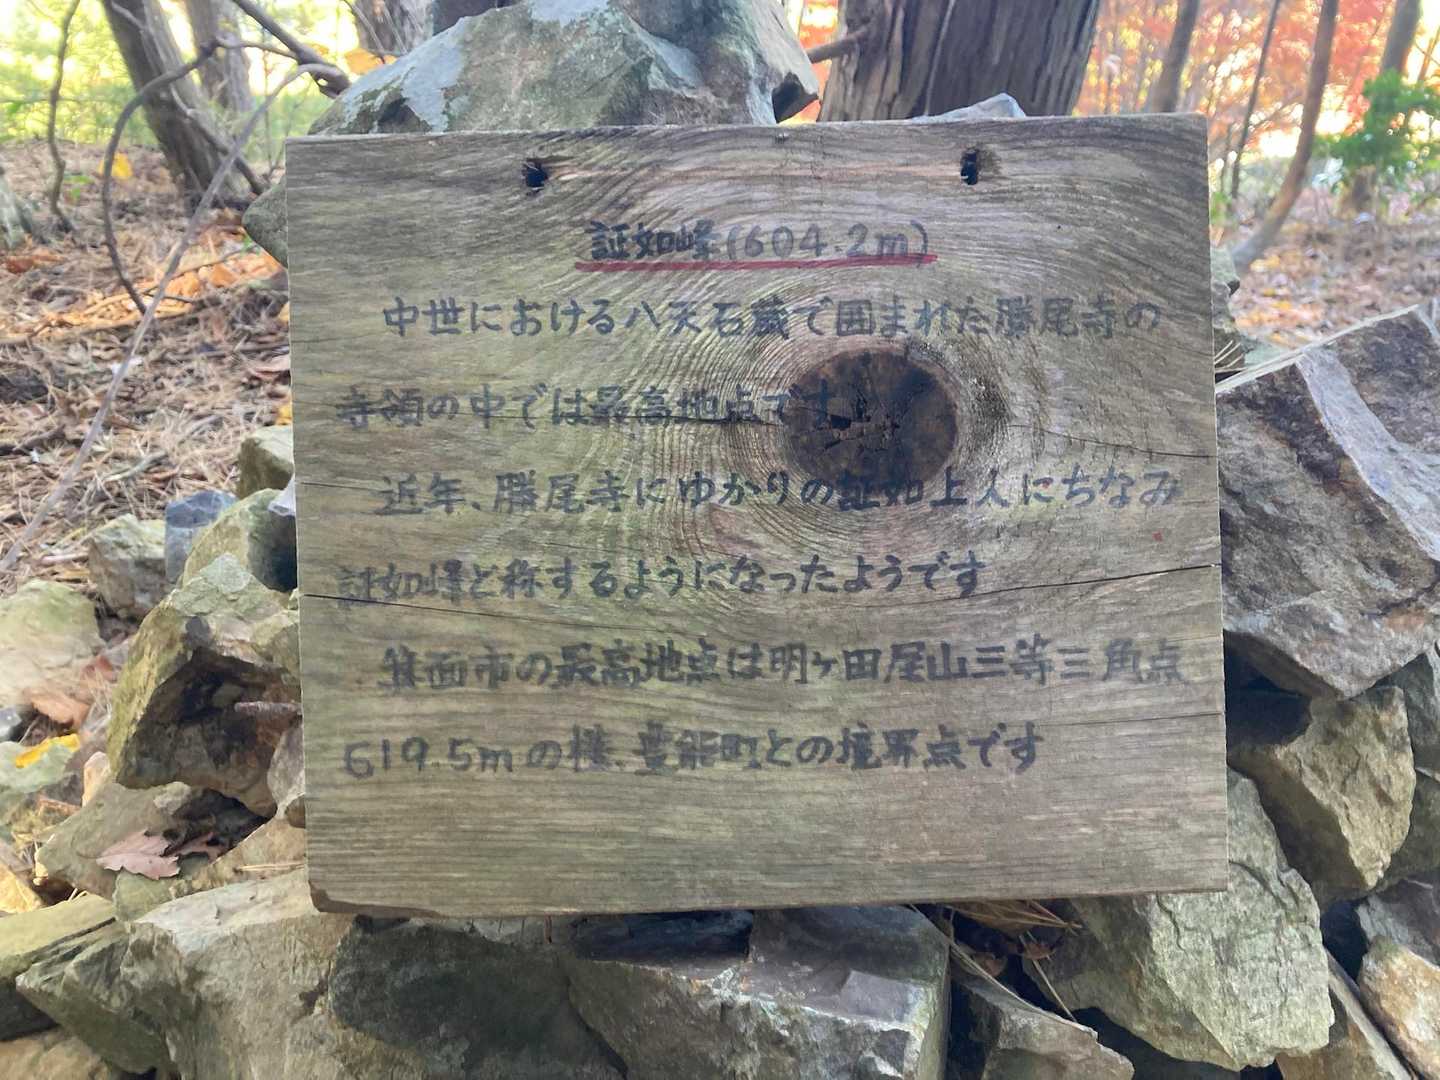 証如峰(604.2m)
中世における八天石蔵で囲まれた勝尾寺の
寺領の中では最高地点です
近年、勝尾寺にゆかりの証如上人にちなみ
証如峰と称するようになったようです
箕面市の最高地点は明ヶ田尾山三等三角点
619.5mの横、豊能町との境界点です